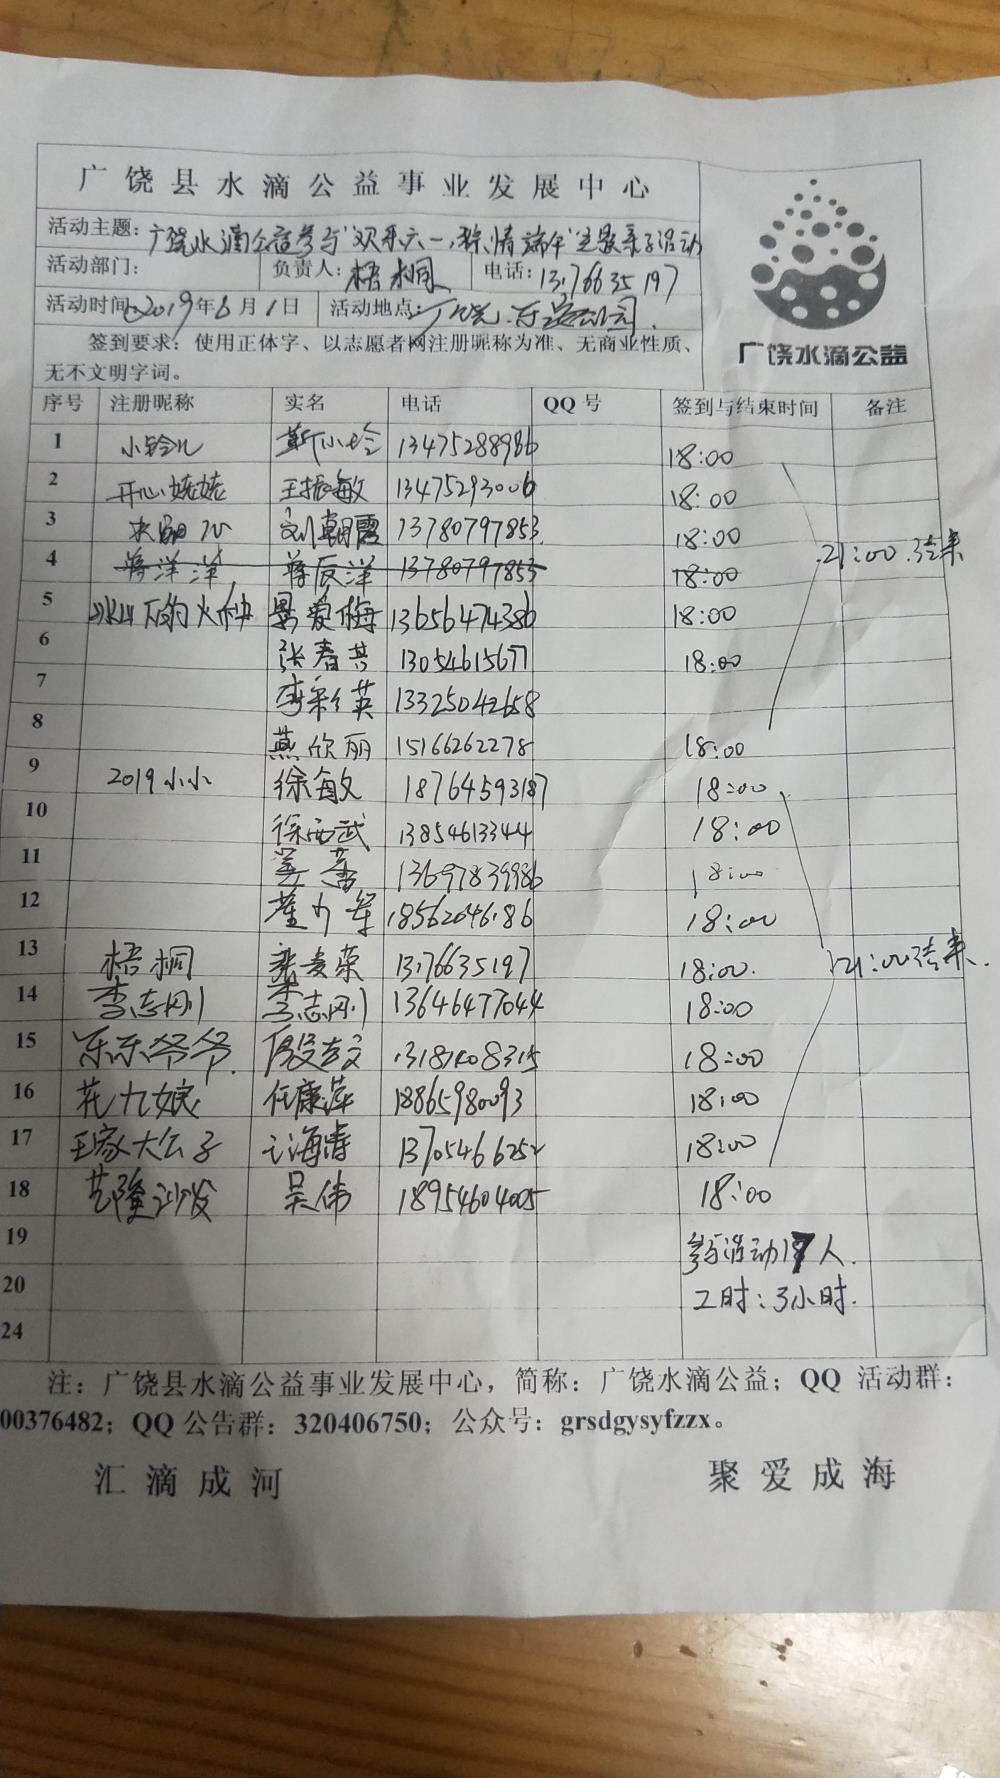 广饶县水滴公益事业发展中心
广饶水滴公益
活动主题：广饶水滴公益参与"欢乐六一,粽情端午"主题亲子活动
活动部门： 负责人：梧桐 电话：13176635197
活动时间：2019年6月1日 活动地点：广饶
签到要求：使用正体字、以志愿者网注册昵称为准、无商业性质、
无不文明字词。
序号 注册昵称 实名 电话 QQ 号 签到与结束时间 备注
1 小铃儿 靳小玲 13475288986 18:00
2 开心婊婊 王振敏 13475293006 18:00
3 刘朝霞 13780797853 18:00
21:00 结束
4 蒋洋洋 蒋辰洋 13780797853 18:00
5 冰山下的火种 爱梅 13656474386 18:00
6 张春共 13054615677 18:00
7 李彩英 13325042658
8 燕欣丽 15166262278 18:00
9 2019小小 徐敏 18764593187 18:00
10 徐西武 13854613344 18:00
11 13697839986 18:00
12 18562046186 18:00
13 梧桐 13176635197 18:00. 21:00结束.
14 李志刚 李志刚 13646477044 18:00
15 乐乐爷爷. 18:00
16 花九娘 任康萍 18865980093 18:00
17 王家大公子 13705466252 18:00
18 艺隆沙发 吴伟 18954604005 18:00
19 参与活动17人.
20 工时：3小时.
24
注：广饶县水滴公益事业发展中心，简称：广饶水滴公益；QQ 活动群：
00376482；QQ 公告群：320406750；公众号：grsdgysyfzzx。
汇滴成河 聚爱成海